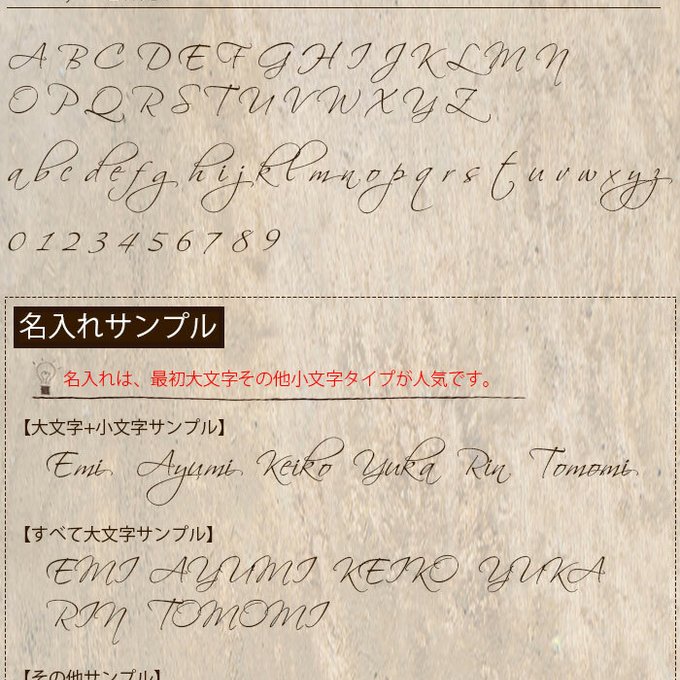 A B C D E F G H I J K L M N
O P Q R S T U V W X Y Z
a b c d e f g h i j k l m n o p q r s t u v w x y z
0 1 2 3 4 5 6 7 8 9
名入れサンプル
名入れは、最初大文字その他小文字タイプが人気です。
【大文字+小文字サンプル】
Emi Ayumi Keiko Yuka Rin Tomomi
【すべて大文字サンプル】
EMI AYUMI KEIKO YUKA
RIN TOMOMI
【その他サンプル】